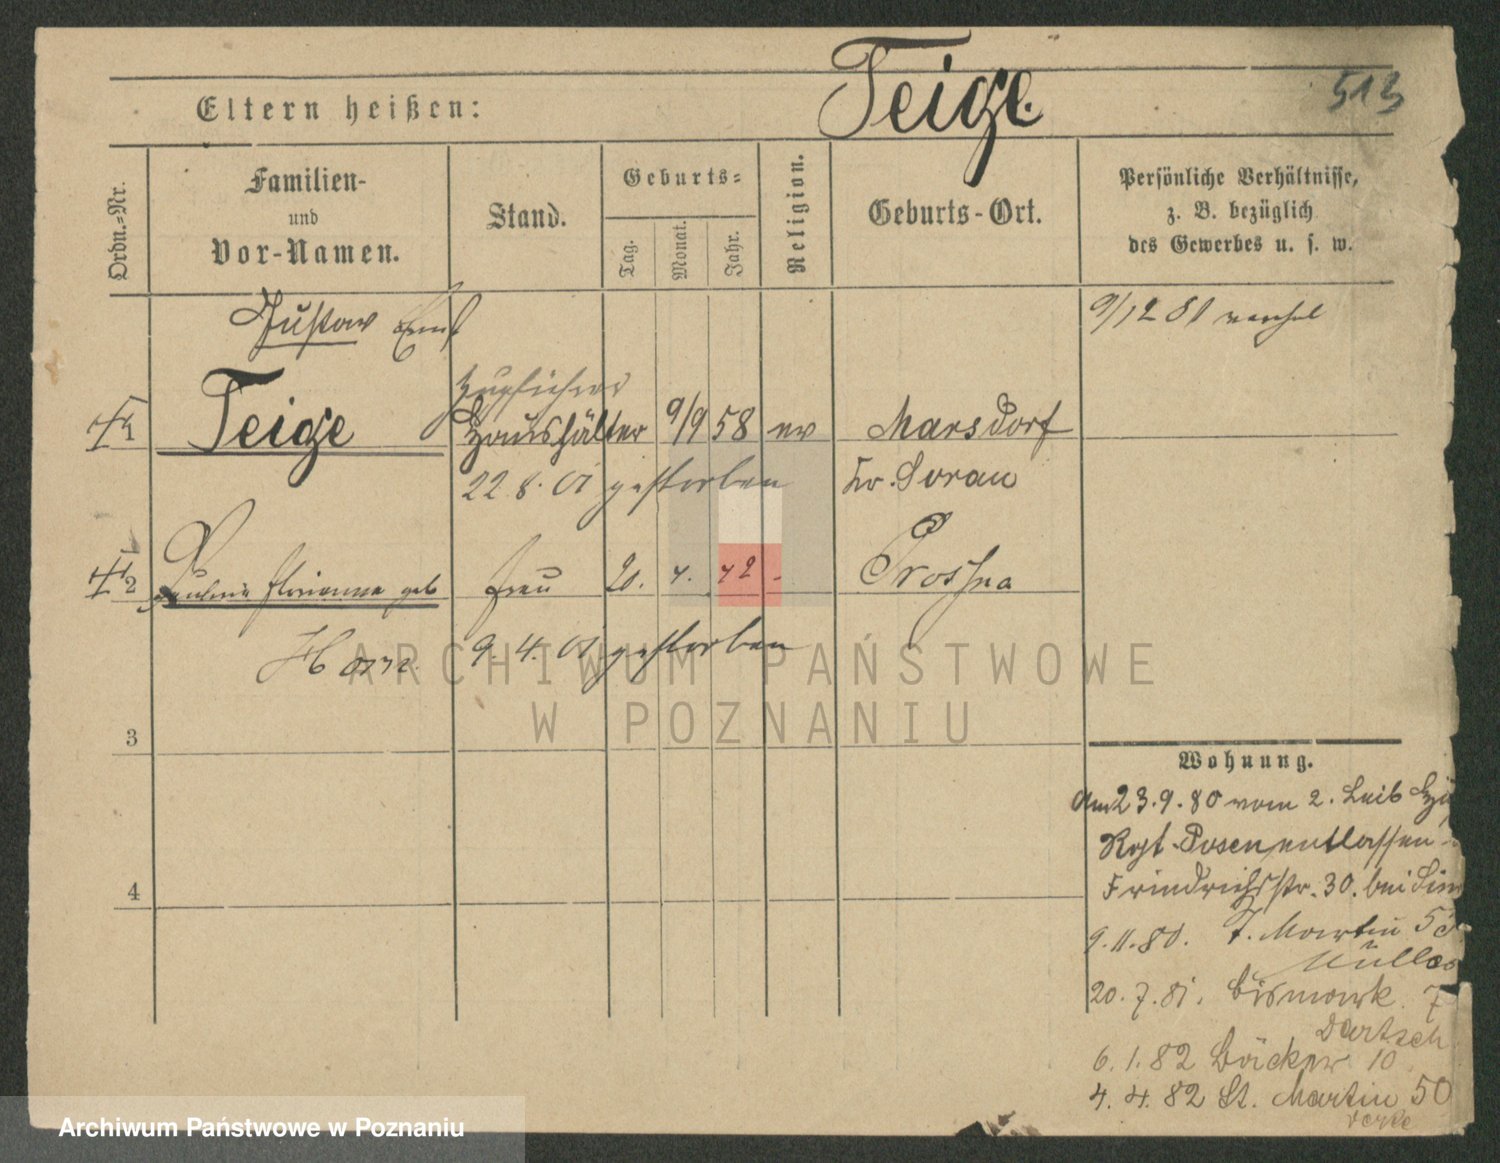 Teige.
513
Eltern heißen:
Ordn.-Nr.
Familien-
und
Vor-Namen.
Stand.
Geburts-
Tag.
Monat.
Jahr.
Religion.
Geburts-Ort.
Persönliche Verhältnisse,
z. B. bezüglich
des Gewerbes u. s. w.
Gustav Ernst
9/12 81
1
Teige
Haushälter
9/9 58
ev
Marsdorf
22. 8. 01 gestorben
Kr. Sorau
2
Florianna geb
Frau
20. 4. 42
Prosna
Horn
9. 4. 01 gestorben
ARCHIWUM PAŃSTWOWE
W POZNANIU
3
4
Wohnung.
Am 23.9.80 vom 2. Leib
Rgt Posen entlassen
Friedrichstr. 30. bei
9.11.80. St. Martin
Müller
20.7.81. Bismark. 7
Dartsch
6.1.82 Bäcker 10
4.4.82 St. Martin 50
Archiwum Państwowe w Poznaniu